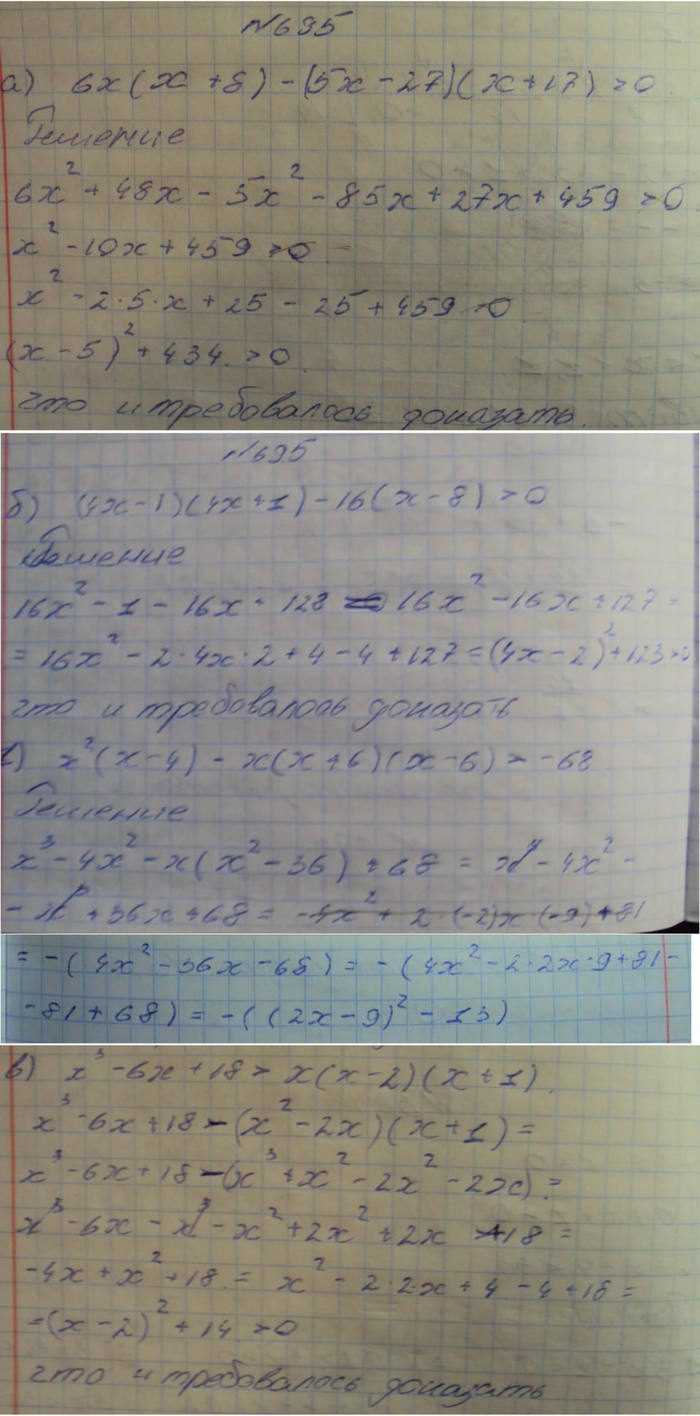 №695
а) 6x(x+8)-(5x-27)(x+17)>0.
Решение
6x²+48x-5x²-85x+27x+459>0
x²-10x+459>0
x²-2·5·x+25-25+459>0
(x-5)²+434.>0.
что и требовалось доказать.
№695
б) (4x-1)(4x+1)-16(x-8)>0
Решение
16x²-1-16x+128=16x²-16x+127=
=16x²-2·4x·2+4-4+127=(4x-2)²+123>0
что и требовалось доказать
г) x²(x-4)-x(x+6)(x-6)>-68
Решение
x³-4x²-x(x²-36)+68=x³-4x²-
-x³+36x+68=-4x²+2·(-2)x·(-9)+81
=-(4x²-36x-68)=-(4x²-2·2x·9+81-
-81+68)=-((2x-9)²-13)
в) x³-6x+18>x(x-2)(x+1).
x³-6x+18-(x²-2x)(x+1)=
x³-6x+18-(x³+x²-2x²-2x)=
x³-6x-x³-x²+2x²+2x+18=
-4x+x²+18.=x²-2·2·x+4-4+18=
=(x-2)²+14.>0
что и требовалось доказать